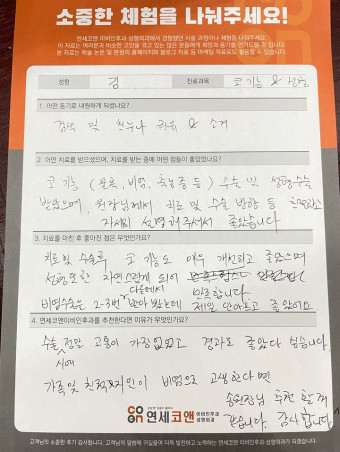 소중한 체험을 나눠주세요!
연세코앤 이비인후과·성형외과에서 경험했던 시술 과정이나 체험을 나눠주세요.
이 자료는 여러분과 비슷한 고민을 겪고 있는 많은 분들에게 희망과 용기를 안겨드릴 것 입니다.
본 자료는 학술 논문 및 본원의 홈페이지와 블로그 치료 등 마케팅 자료로도 활용될 수 있습니다.
성함 김 진료과목 코 기능 & 성형
1. 어떤 동기로 내원하게 되셨나요?
검색 및 친누나 권유 & 소개
2. 어떤 치료를 받으셨으며, 치료를 받는 중에 어떤 점들이 좋았었나요?
코 기능 ( 비염, 축농증 등) 수술 및 성형수술
받았으며, 원장님께서 치료 및 수술 방향 등
자세히 설명해주셔서 좋았습니다
3. 치료를 마친 후 좋아진 점은 무엇인가요?
치료 및 수술후 코 기능도 매우 개선되고 좋았으며
성형 또한 자연스럽게 되어
다른데서 만족합니다.
비염수술은 2-3번 받아 봤는데 제일 안아프고 좋았어요.
4. 연세코앤이비인후과를 추천한다면 이유가 무엇인가요?
수술 정말 고통이 가장 없었고 경과도 좋았다 싶습니다.
시에
가족 및 친척 지인이 비염으로 고생한다면
송원장님 추천 할게
같습니다. 감사합니다
CO&N 연세코앤 이비인후과 성형외과
고객님의 소중한 후기 감사합니다. 고객님의 말씀에 귀길울여 더욱 발전하고 노력하는 연세코앤 이비인후과 성형외과가 되겠습니다.